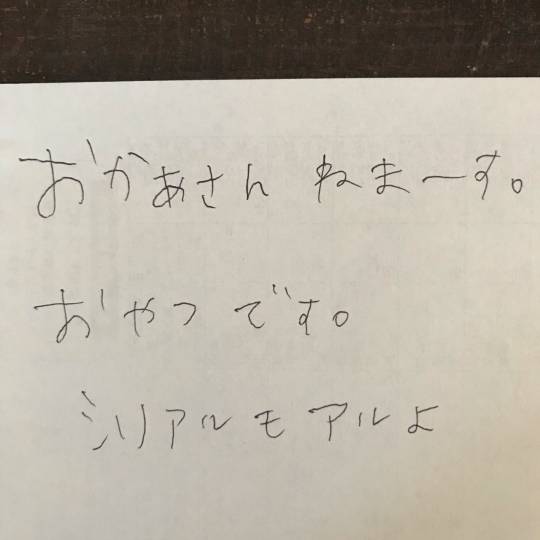 おかあさん ねまーす。
おやつ です。
シリアルモアルよ